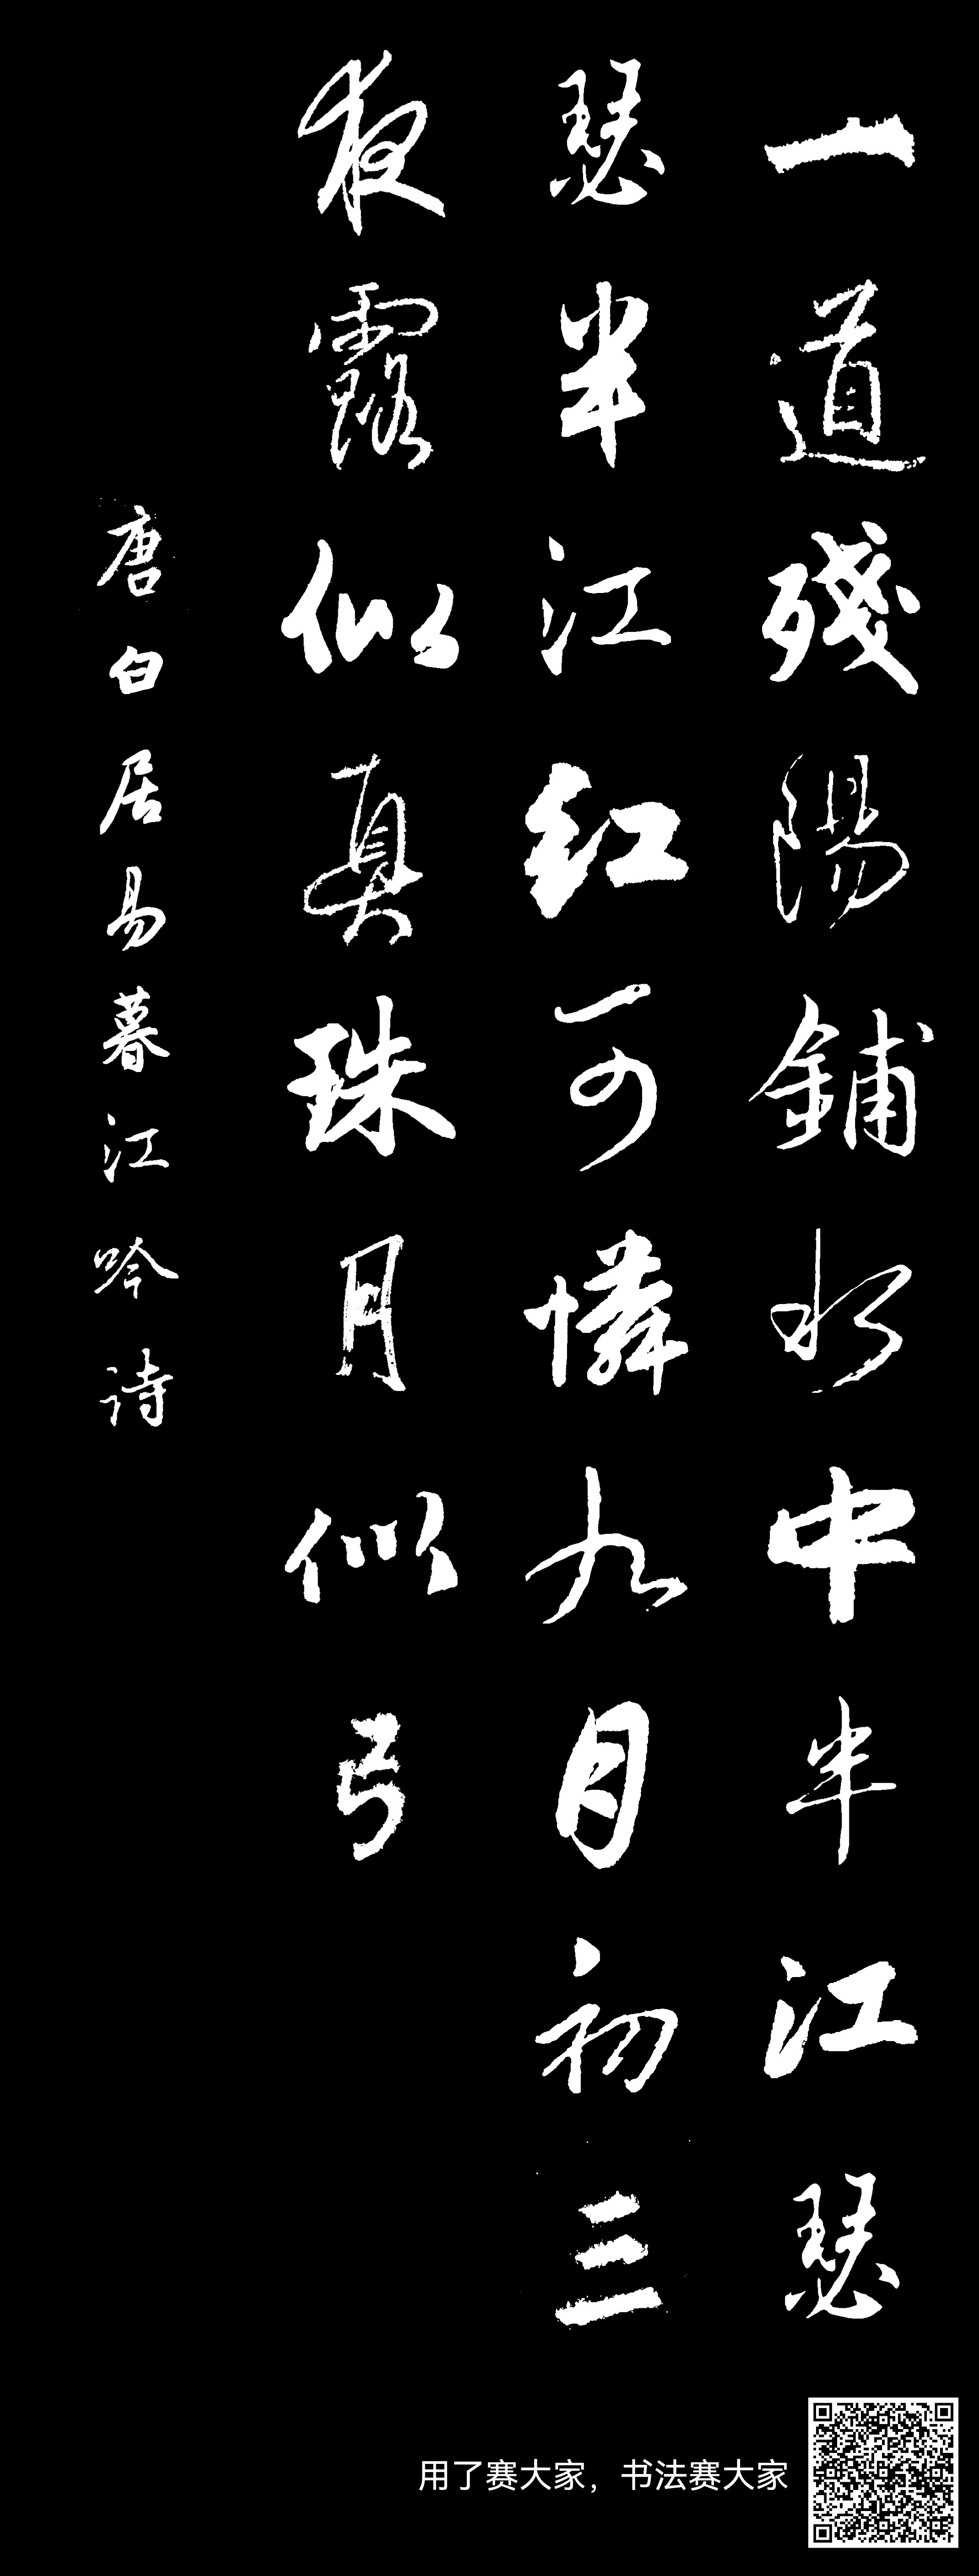 一道殘陽鋪水中半江瑟
瑟半江紅可憐九月初三
夜露似真珠月似弓
唐白居易暮江吟诗
用了赛大家，书法赛大家